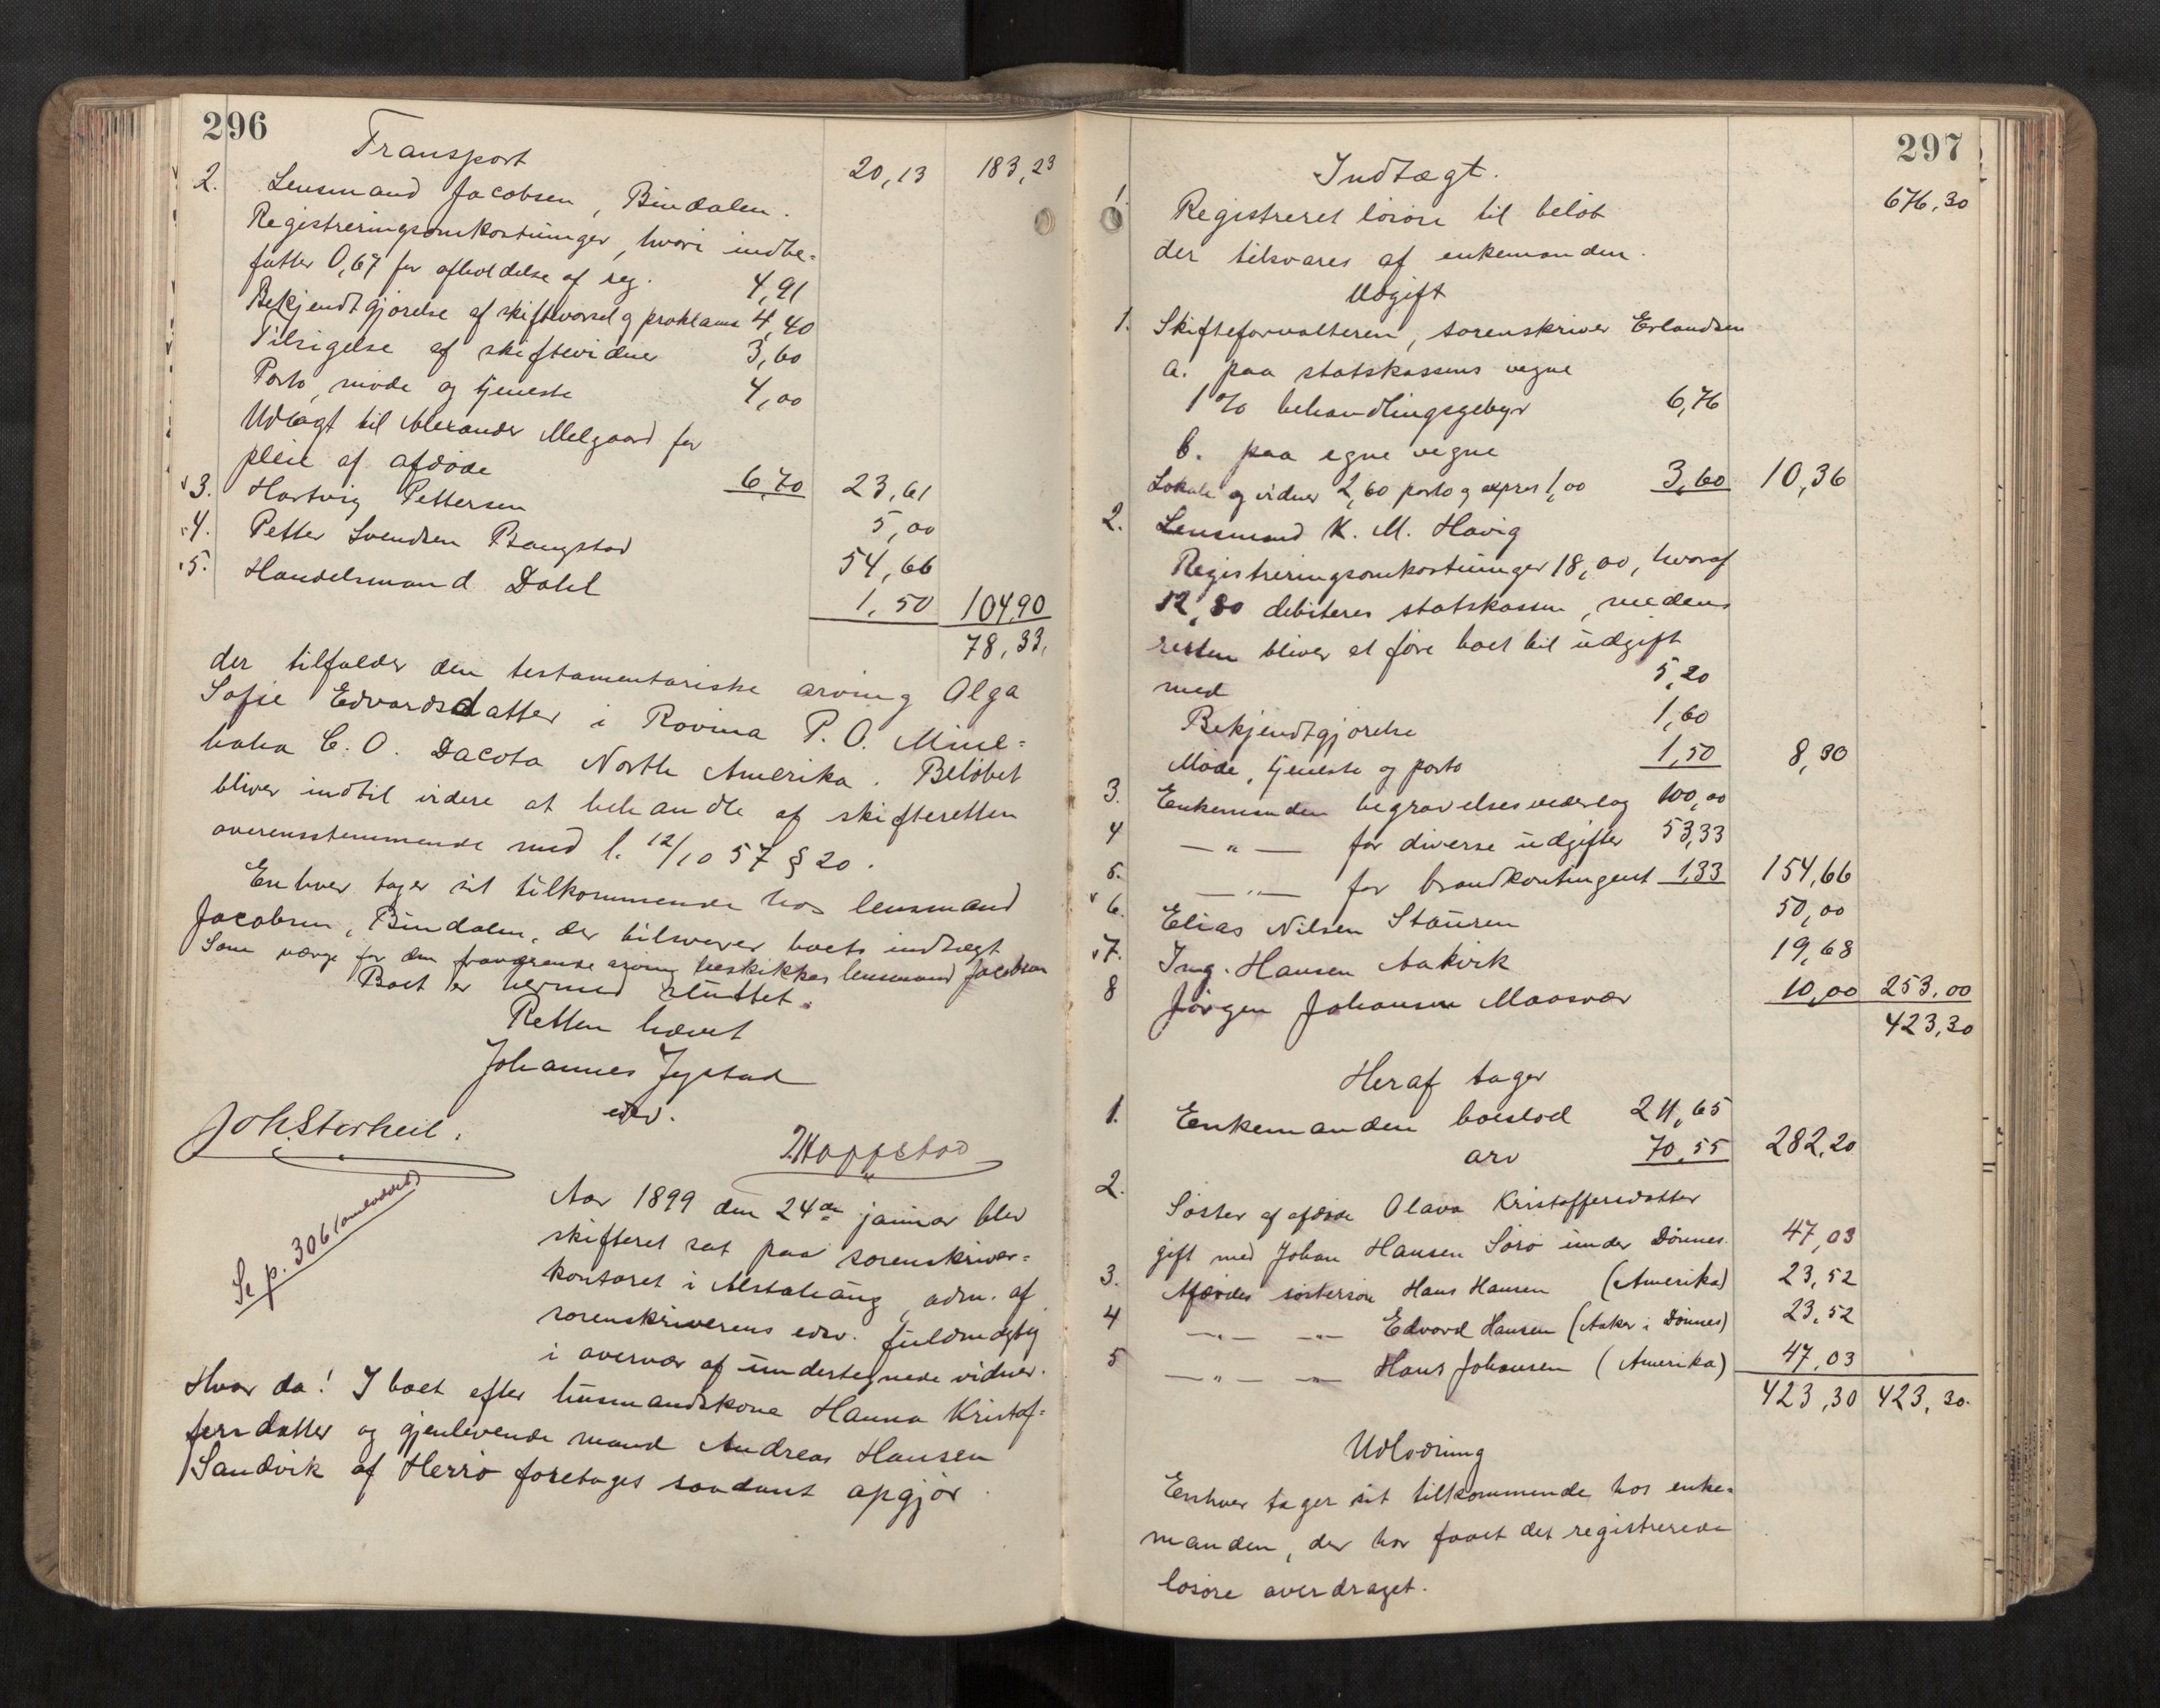 296
Transport 20,13 183,23
2. Lensmand Jacobsen, Bindalen.
Registreringsomkostninger, hvori indbe-
fatter 0,67 for afholdelse af reg. 4,91
Bekjendtgjørelse af skiftevarsel og proklama 4,40
Tilsigelse af skiftevidner 3,60
Porto, møde og tjeneste 4,00
Udlagt til Alexander Melgaard for
pleie af afdøde 6,70 23,61
3. Hartvig Pettersen 5,00
4. Petter Svendsen Bangstad 54,66
5. Handelsmand Dahl 1,50 104,90
78,33,
der tilfalder den testamentariske arving Olga
Sofie Edvardsdatter i Rovina P. O. Mine-
haha C. O. Dacota North Amerika. Beløbet
bliver indtil videre at behandle af skifteretten
overensstemmende med l. 12/10 57 § 20.
Enhver tager sit tilkommende hos lensmand
Jacobsen, Bindalen, der tilsvarer boets indtægt
Som værge for den fraværende arving beskikkes lensmand Jacobsen
Boet er hermed sluttet.
Retten hævet
Johannes
edsv.
Joh. Storheil.
Se p. 306
Aar 1899 den 24de januar blev
skifteret sat paa sorenskriver-
kontoret i Alstahaug, adm. af
sorenskriverens edsv. fuldmægtig
i overvær af undertegnede vidner.
Hvor da! I boet efter husmandskone Hanna Kristof-
fersdatter og gjenlevende mand Andreas Hansen
Sandvik af Herrø foretages saadant opgjør.
297
Indtægt.
1. Registreret løsøre til beløb 676,30
der tilsvares af enkemanden.
Udgift
1. Skifteforvalteren, sorenskriver Erlandsen
a. paa statskassens vegne
1 % behandlingsgebyr 6,76
b. paa egne vegne
Lokale og vidner 2,60 porto og expres 1,00 3,60 10,36
2. Lensmand K. M. Havig
Registreringsomkostninger 18,00, hvoraf
12,80 debiteres statskassen, medens
resten bliver at føre boet til udgift
med 5,20
Bekjendtgjørelse 1,60
Møde, tjeneste og porto 1,50 8,30
3. Enkemanden begravelsesvederlag 100,00
4 — " — for diverse udgifter 53,33
5. — " — for brandkontingent 1,33 154,66
6. Elias Nilsen Stauren 50,00
7. Ing. Hansen Aakvik 19,68
8 Jørgen Johansen Maasvær 10,00 253,00
423,30
Heraf tager
1. Enkemanden boeslod 211,65
arv 70,55 282,20
2. Søster af afdøde Olava Kristoffersdatter
gift med Johan Hansen Sørø under Dønnes. 47,03
3. Afdødes søstersøn Hans Hansen (Amerika) 23,52
4 — " — — " — Edvard Hansen (Aaker i Dønnes) 23,52
5 — " — — " — Hans Johansen (Amerika) 47,03
423,30 423,30.
Udlodning
Enhver tager sit tilkommende hos enke-
manden, der har faaet det registrerede
løsøre overdraget.